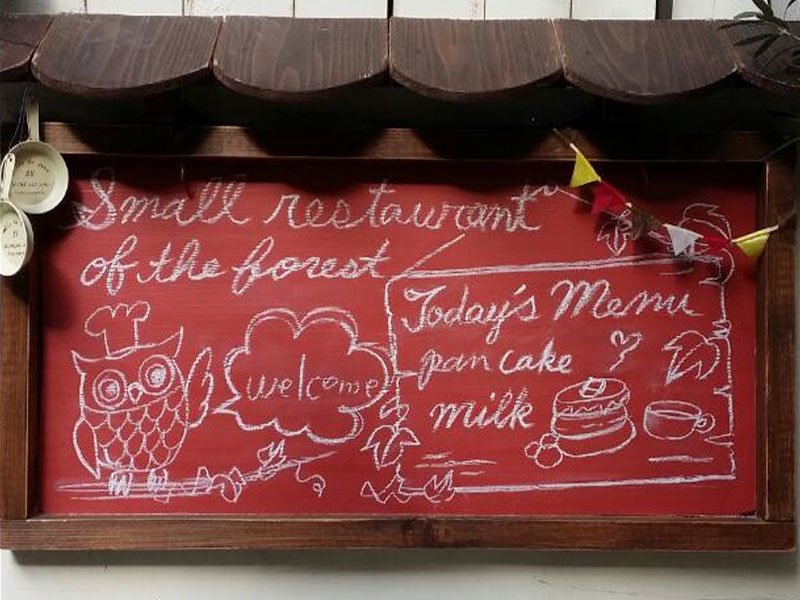 Small restaurant
of the forest
welcome
Today's Menu
pancake
milk